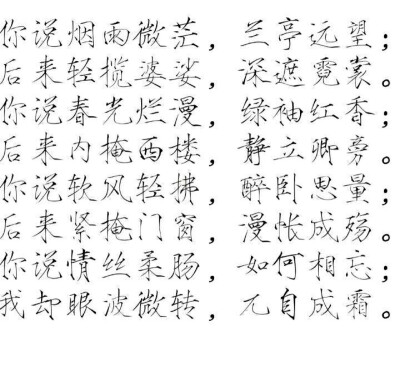 你说烟雨微茫，兰亭远望；
后来轻揽婆娑，深遮霓裳。
你说春光烂漫，绿袖红香；
后来内掩西楼，静立卿旁。
你说软风轻拂，醉卧思量；
后来紧掩门窗，漫帐成殇。
你说情丝柔肠，如何相忘；
我却眼波微转，兀自成霜。